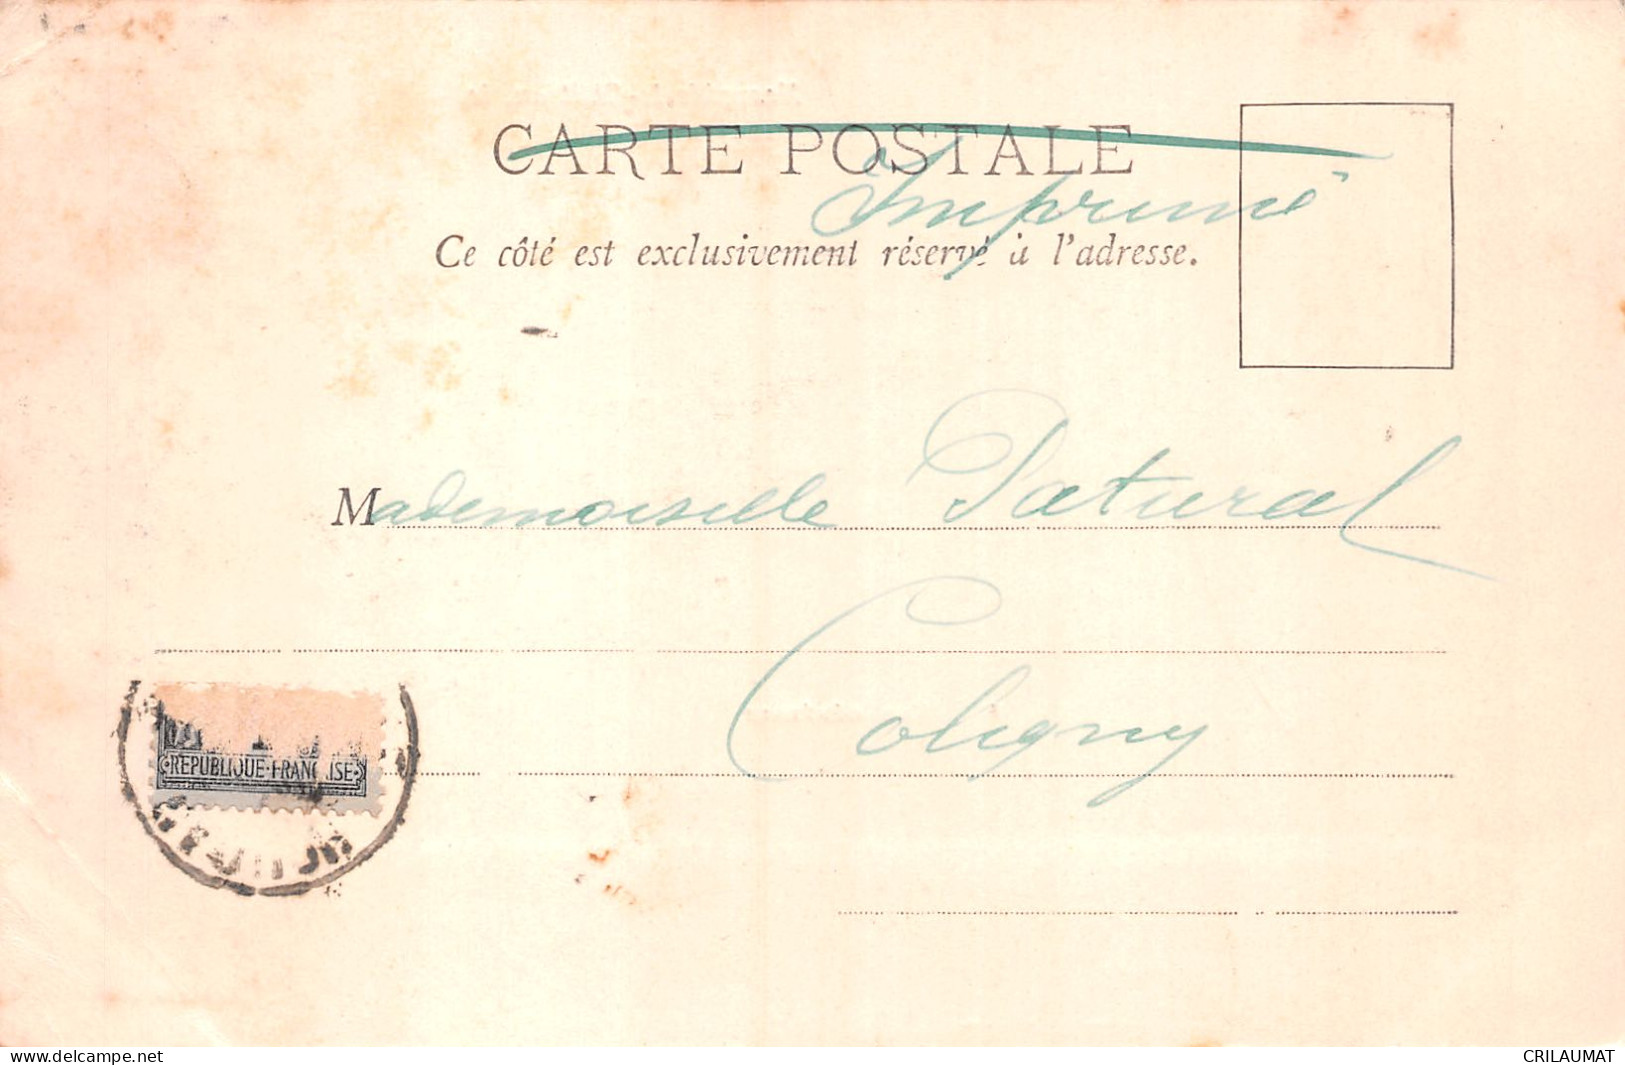 CARTE POSTALE
Imprimé
Ce côté est exclusivement réservé à l'adresse.
Mademoiselle Patural
Coligny
REPUBLIQUE FRANÇAISE
delcampe.net
CRILAUMAT